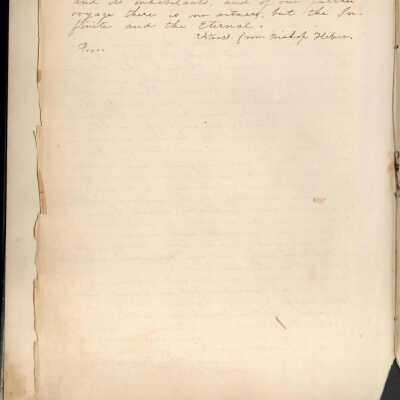 and its inhabitants, and of our further
voyage there is no witness, but the In-
finite and the Eternal.
Extract from Bishop Heber.